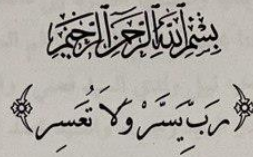 بِسْمِ اللَّهِ الرَّحْمَنِ الرَّحِيمِ
﴿رَبِّ يَسِّرْ وَلاَ تُعَسِر﴾